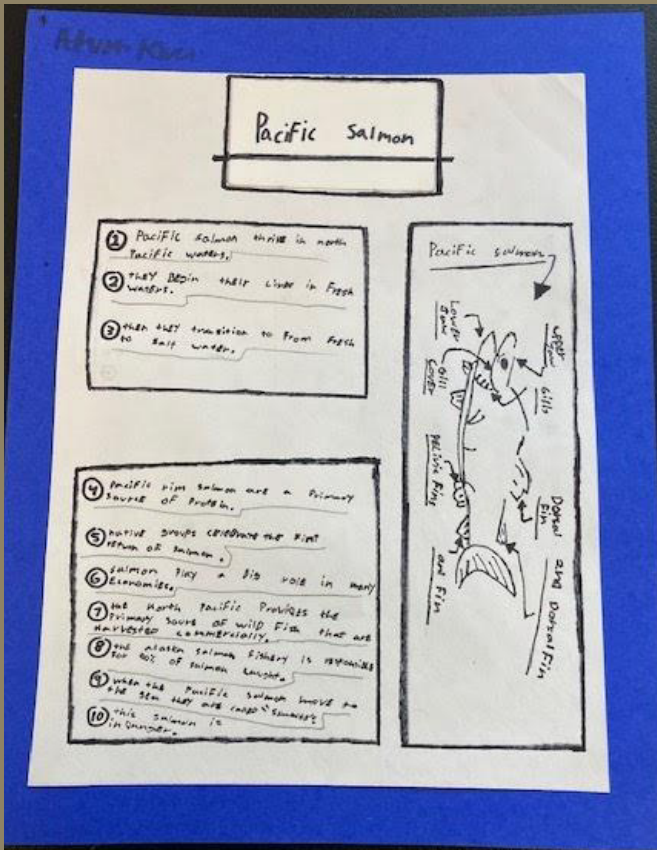 Pacific Salmon
① Pacific salmon thrive in north
Pacific waters.
② they Begin their Lives in Fresh
waters.
③ then they transition to From Fresh
to salt water.
④ Pacific rim salmon are a Primary
source of Protein.
⑤ native groups celebrate the First
return of salmon.
⑥ salmon Play a Big role in many
Economies.
⑦ the north Pacific Provides the
Primary sourc of wild Fish that are
Harvested commercially.
⑧ the alaska salmon Fishery is
For 90% of salmon caught.
⑨ when the Pacific salmon move to
the sea they are called
⑩ this salmon is
in Danger.
Pacific salmon
Lower Jaw
upper Jaw
Gill Cover
Gills
Pelivic Fins
Dorsal Fin
2nd Dorsal Fin
anl Fin